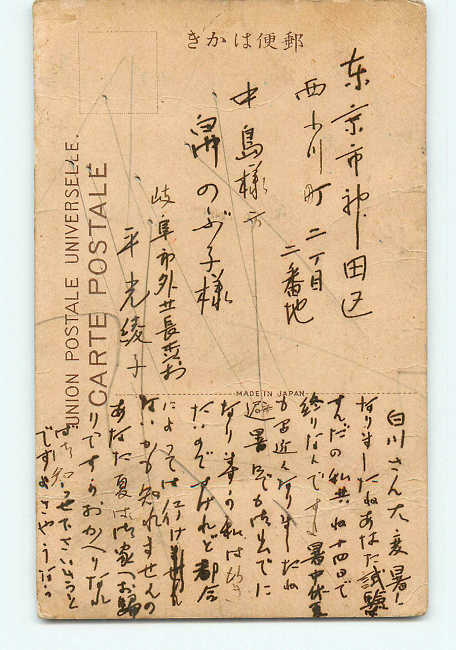 郵便はかき
東京市神田区
西小川町二丁目
二番地
中島様方
のぶ子様
岐阜市外長良村
平光綾子
UNION POSTALE UNIVERSELLE.
CARTE POSTALE
MADE IN JAPAN
白川さん大変暑く
なりましたねあなた試験
すんだの私共は十四日で
終りなんです 暑中休暇
も間近くなりましたね
避暑にでも御出でに
なります 私は行き
たいのですけれど都合
によつては行けません
ないかも知れませんの
あなた夏は御家へお帰
りですかおかへりなれ
ば御知らせ下さいません
ですか さやうなら